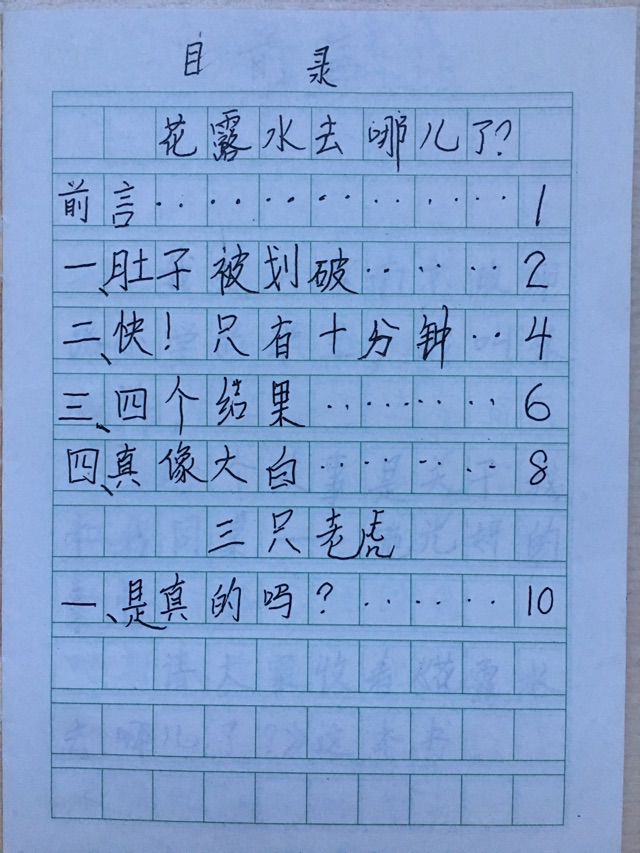 目 录
花露水去哪儿了?
前言············ 1
一、肚子被划破······ 2
二、快!只有十分钟·· 4
三、四个结果······· 6
四、真像大白······· 8
三只老虎
一、是真的吗?······ 10